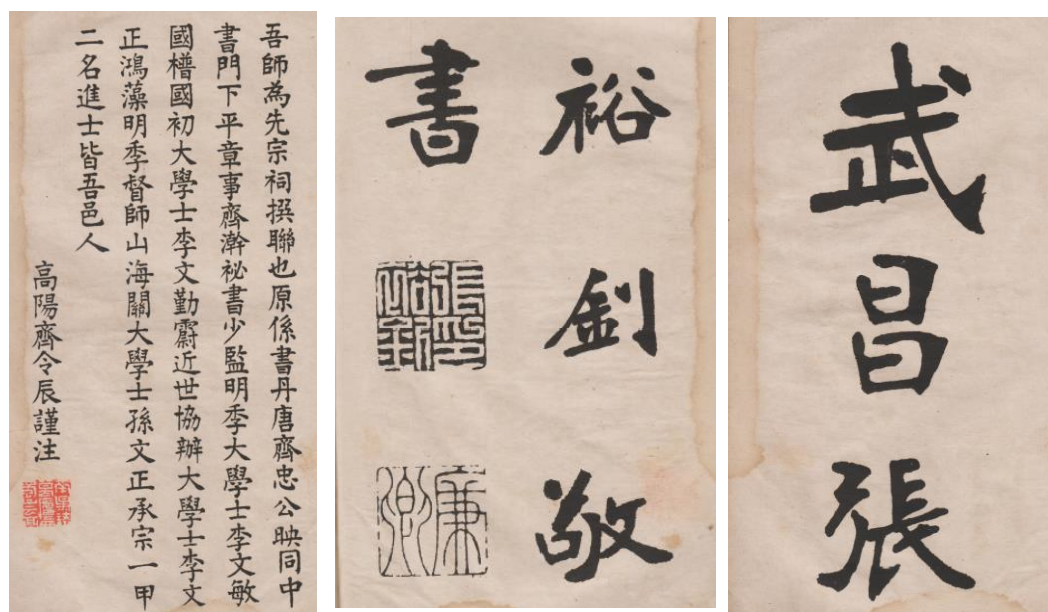 武昌張
裕釗敬
書
張印裕釗
廉卿
吾師為先宗祠撰聯也原係書丹唐齊忠公映同中
書門下平章事齊澣祕書少監明季大學士李文敏
國𣚴國初大學士李文勤霨近世協辦大學士李文
正鴻藻明季督師山海關大學士孫文正承宗一甲
二名進士皆吾邑人
高陽齊令辰謹注